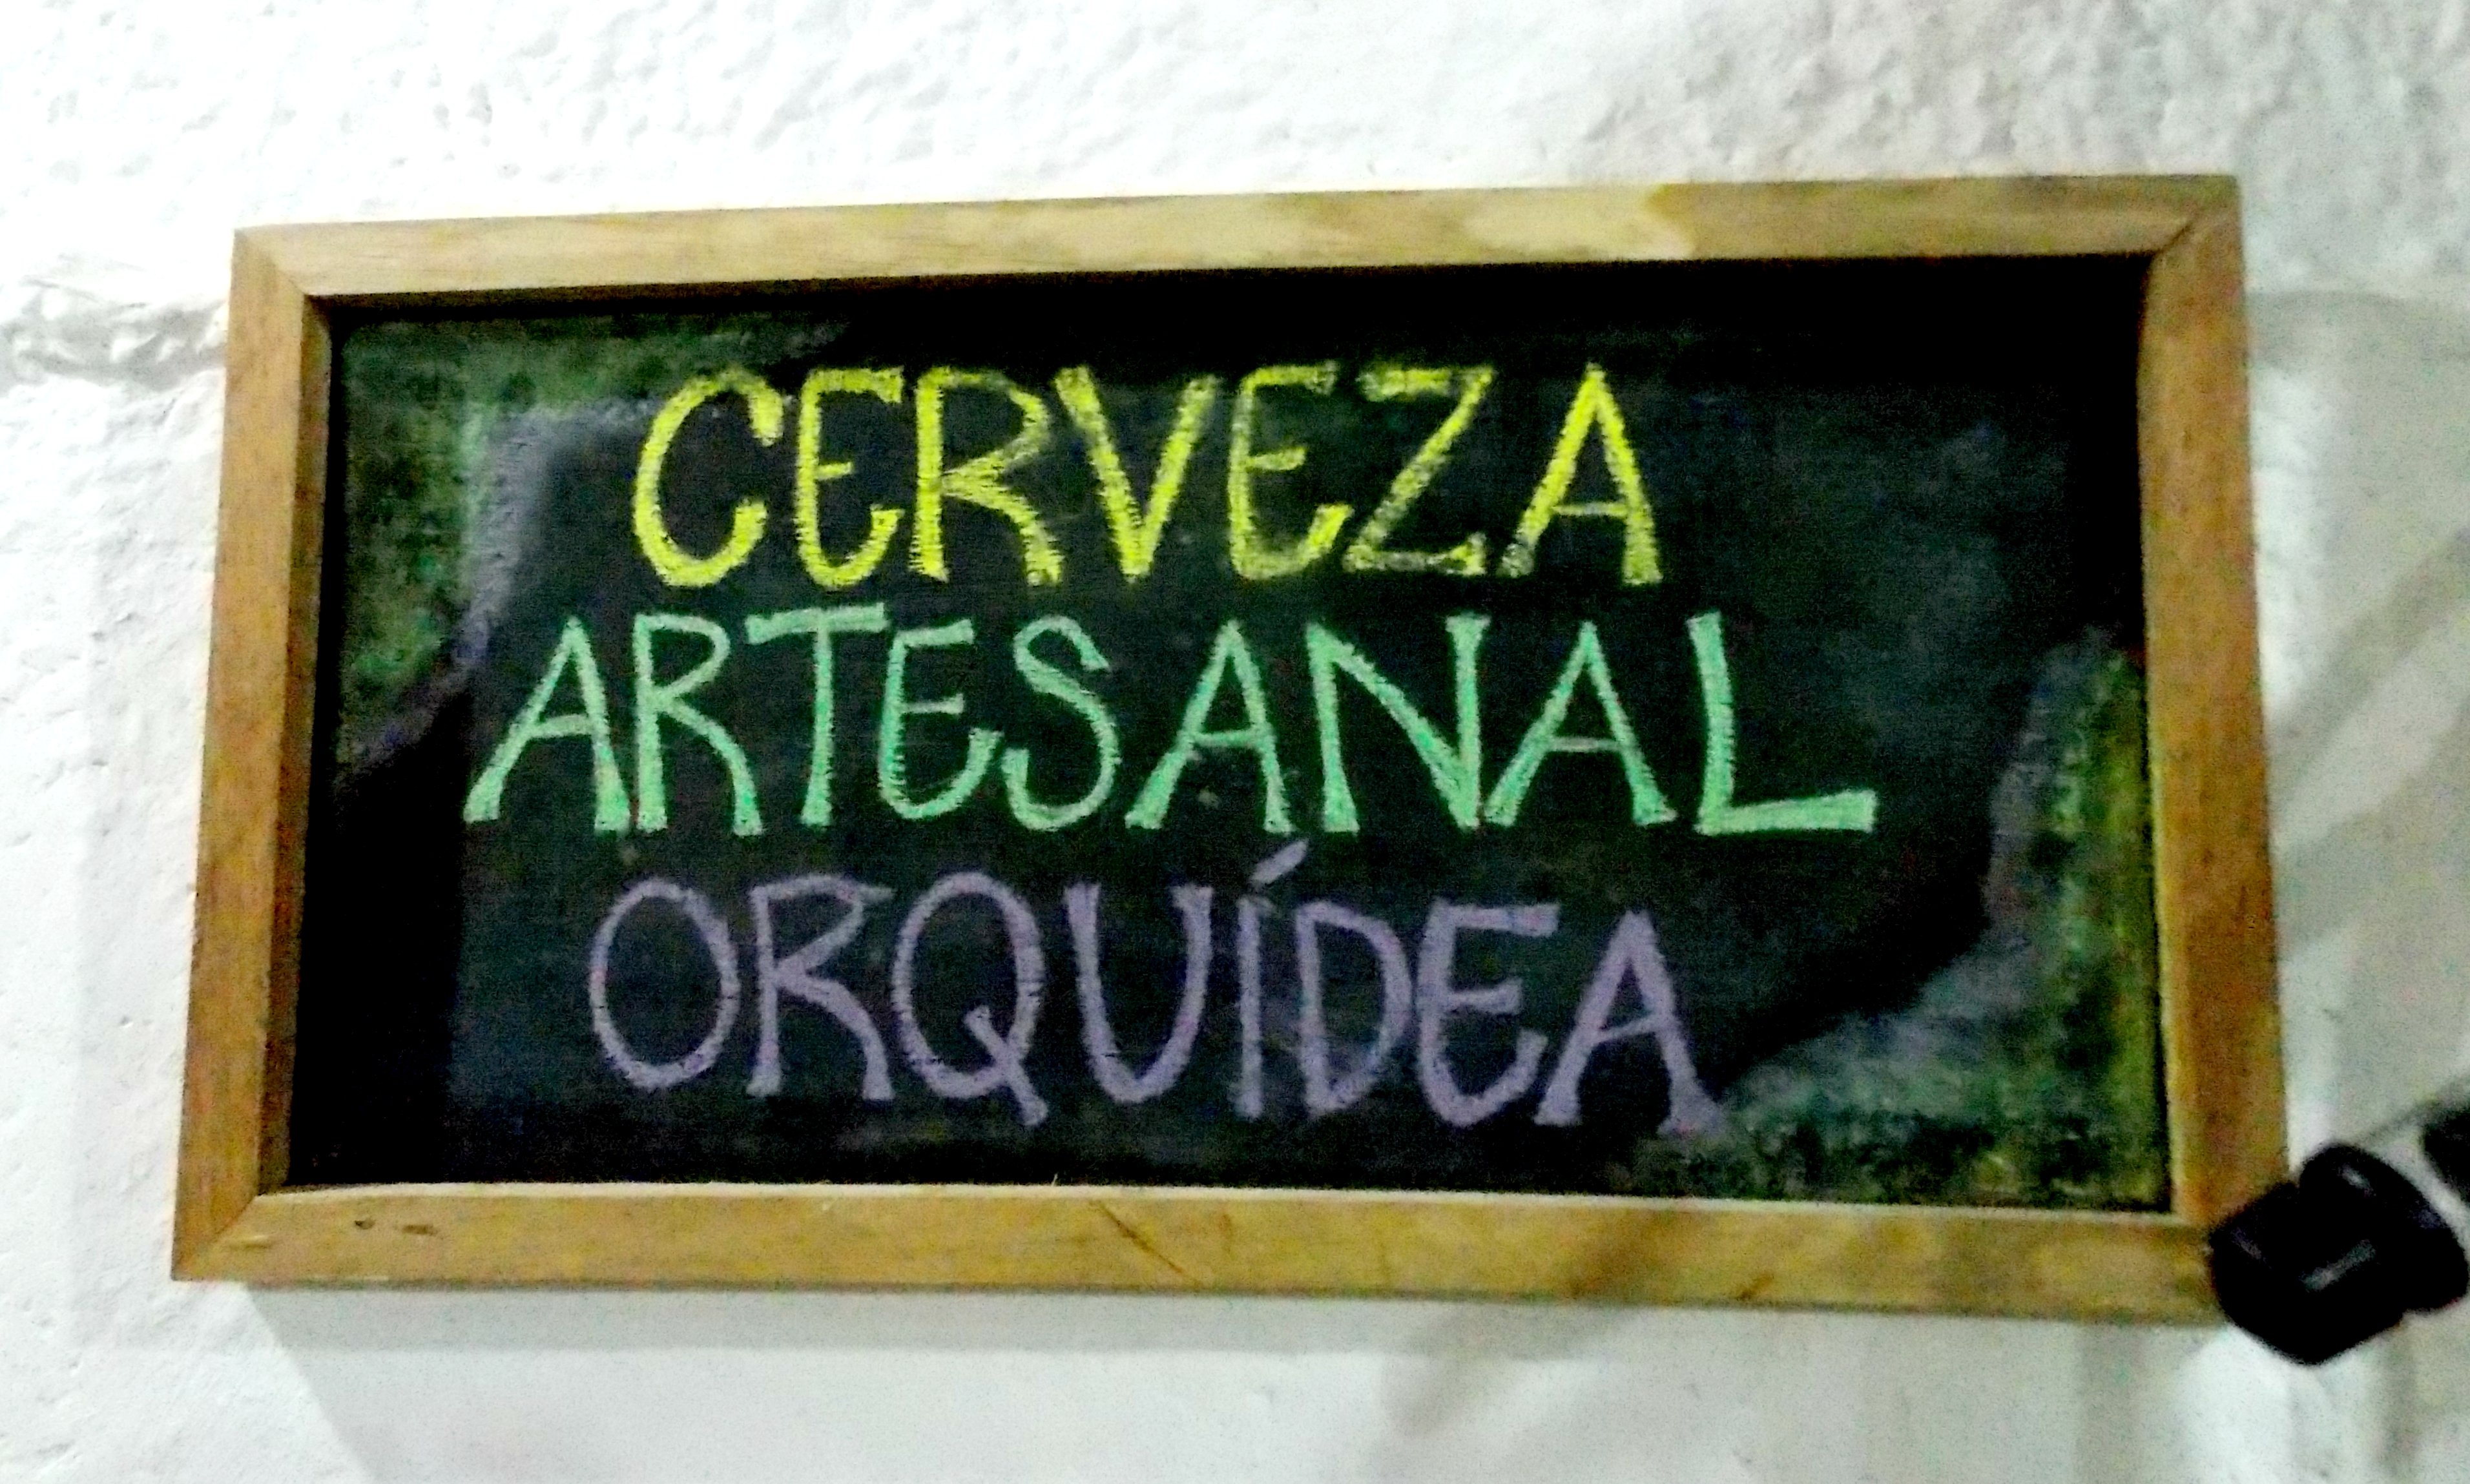 CERVEZA
ARTESANAL
ORQUÍDEA